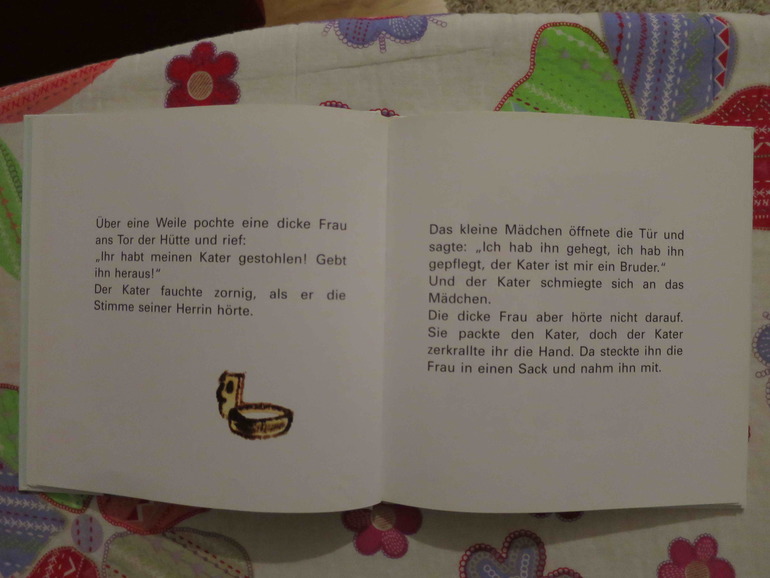 Über eine Weile pochte eine dicke Frau
ans Tor der Hütte und rief:
„Ihr habt meinen Kater gestohlen! Gebt
ihn heraus!“
Der Kater fauchte zornig, als er die
Stimme seiner Herrin hörte.
Das kleine Mädchen öffnete die Tür und
sagte: „Ich hab ihn gehegt, ich hab ihn
gepflegt, der Kater ist mir ein Bruder.“
Und der Kater schmiegte sich an das
Mädchen.
Die dicke Frau aber hörte nicht darauf.
Sie packte den Kater, doch der Kater
zerkrallte ihr die Hand. Da steckte ihn die
Frau in einen Sack und nahm ihn mit.